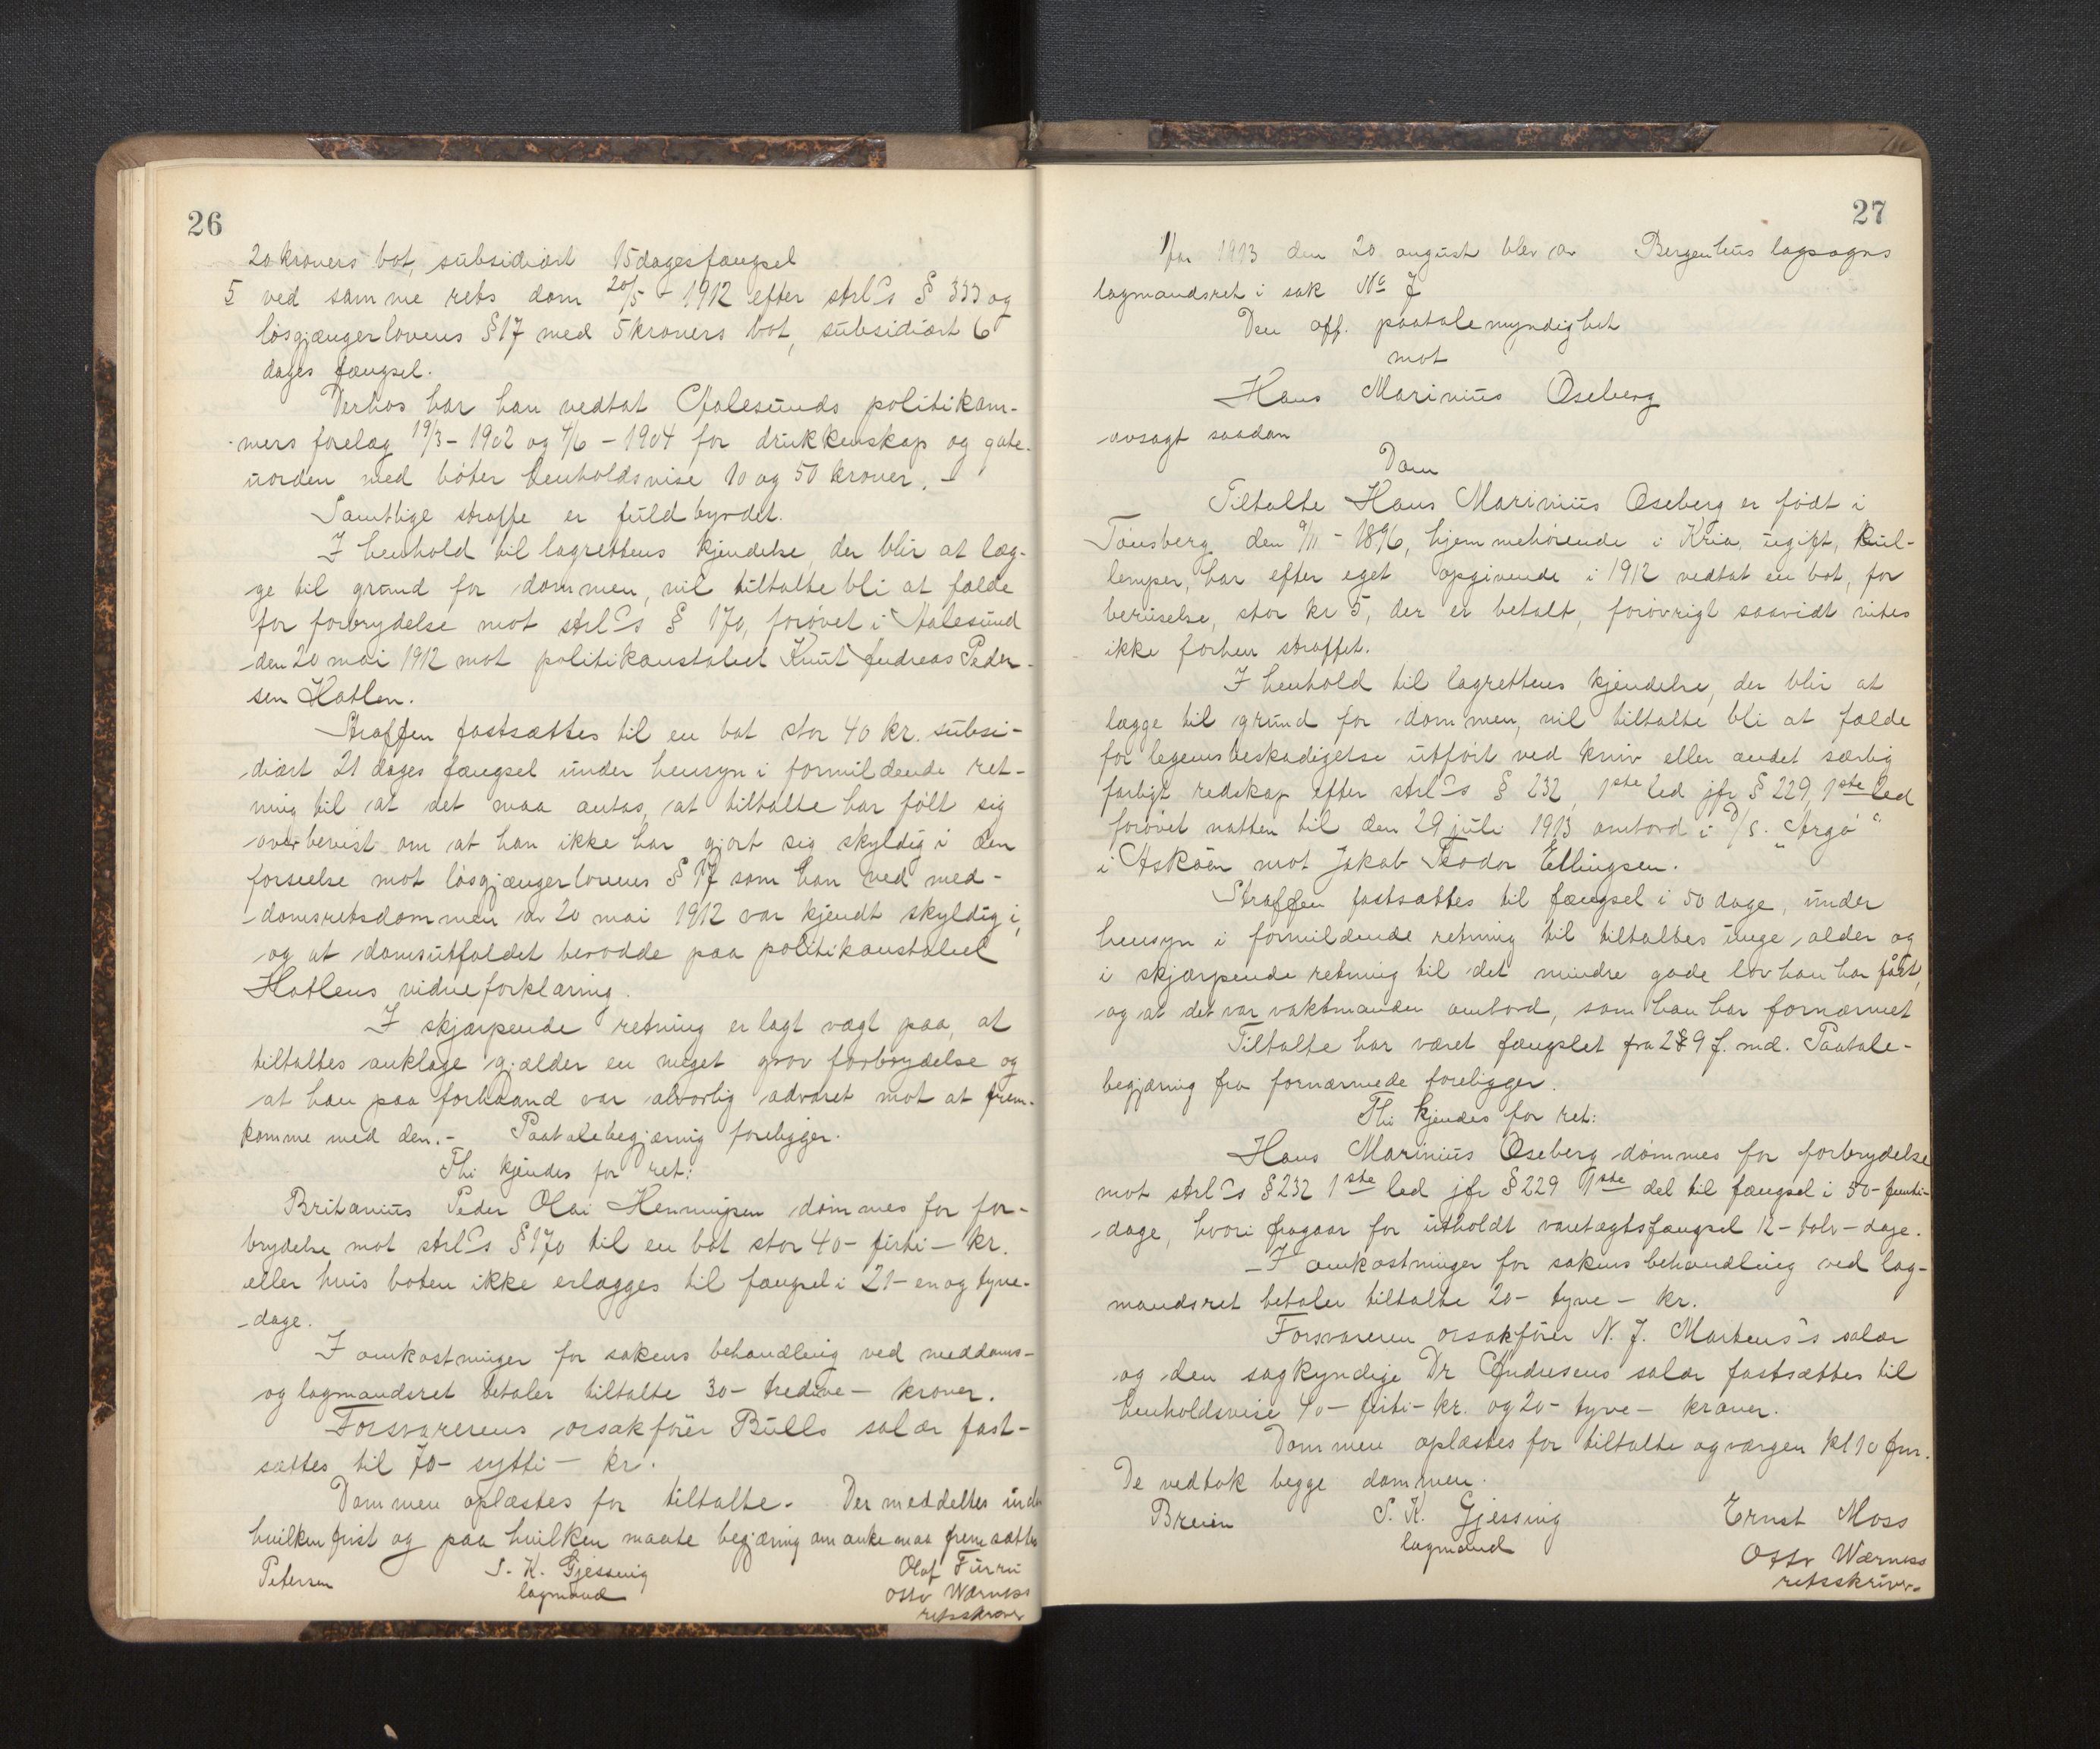 26
20 kroners bot, subsidiært 15 dages fængsel
5 ved samme rets dom 20/5 - 1912 efter strl.s § 333 og
løsgjængerlovens § 17 med 5 kroners bot, subsidiært 6
dages fængsel.
Derhos har han vedtat Aalesunds politikam-
mers forelæg 19/3 - 1902 og 4/6 - 1904 for drukkenskap og gate-
uorden med bøter henholdsvise 10 og 50 kroner. -
Samtlige straffe er fuldbyrdet.
I henhold til lagrettens kjendelse, der blir at læg-
ge til grund for dommen, vil tiltalte bli at fælde
for forbrydelse mot strl.s § 170, forøvet i Aalesund
den 20 mai 1912 mot politikonstabel Knut Andreas Peder-
sen Hatlen.
Straffen fastsættes til en bot stor 40 kr. subsi-
diært 21 dages fængsel under hensyn i formildende ret-
ning til at det maa antas, at tiltalte har følt sig
overbevist om at han ikke har gjort sig skyldig i den
forseelse mot løsgjængerlovens § 17 som han ved med-
domsretsdommen av 20 mai 1912 var kjendt skyldig i,
og at domsutfaldet berodde paa politikonstabel
Hatlens vidneforklaring.
I skjærpende retning er lagt vægt paa, at
tiltaltes anklage gjælder en meget grov forbrydelse og
at han paa forhaand var alvorlig advaret mot at frem-
komme med den. - Paatalebegjæring foreligger.
Thi kjendes for ret:
Britanius Peder Olai Henningsen dømmes for for-
brydelse mot strl.s § 170 til en bot stor 40 - firti - kr.
eller hvis boten ikke erlægges til fængsel i 21 - en og tyve -
dage.
I omkostninger for sakens behandling ved meddoms-
og lagmandsret betaler tiltalte 30 - tredive - kroner.
Forsvarerens orsakfører Bulls salær fast-
sættes til 70 - sytti - kr.
Dommen oplæstes for tiltalte. Der meddeltes under
hvilken frist og paa hvilken maate begjæring om anke maa fremsættes
Petersen S. K. Gjessing Olaf Furru
lagmand Otto Wærness
retsskriver
27
Aar 1913 den 20 august blev av Bergenhus lagsogns
lagmandsret i sak No 7
Den off. paatalemyndighet
mot
Hans Marinius Oseberg
avsagt saadan
Dom
Tiltalte Hans Marinius Oseberg er født i
Tønsberg den 9/11 - 1896, hjemmehørende i Kria, ugift, kul-
lemper, har efter eget opgivende i 1912 vedtat en bot, for
beruselse, stor kr 5, der er betalt, forøvrigt saavidt vites
ikke forhen straffet.
I henhold til lagrettens kjendelse, der blir at
lægge til grund for dommen, vil tiltalte bli at fælde
for legemsbeskadigelse utført ved kniv eller andet særlig
farligt redskap efter strl.s § 232, 1ste led jfr § 229, 1ste led
forøvet natten til den 29 juli 1913 ombord i D/S. "Argo"
i Askøen mot Jakob Teodor Ellingsen.
Straffen fastsættes til fængsel i 50 dage, under
hensyn i formildende retning til tiltaltes unge alder og
i skjærpende retning til det mindre gode lov han har fåt,
og at det var vaktmanden ombord, som han har fornærmet
Tiltalte har været fængslet fra 29 f. md. Paatale-
begjæring fra fornærmede foreligger.
Thi kjendes for ret:
Hans Marinius Oseberg dømmes for forbrydelse
mot strl.s § 232 1ste led jfr § 229 1ste del til fængsel i 50 - femti -
dage, hvori fragaar for utholdt varetægtsfængsel 12 - tolv - dage.
I omkostninger for sakens behandling ved lag-
mandsret betaler tiltalte 20 - tyve - kr.
Forsvareren orsakfører N. J. Martens's salær
og den sagkyndige Dr Andresens salær fastsættes til
henholdsvise 40 - firti - kr. og 20 - tyve - kroner.
Dommen oplæstes for tiltalte og vergen kl 10 fm.
De vedtok begge dommen.
Breien S. K. Gjessing Ernst Moss
lagmand Otto Wærness
retsskriver